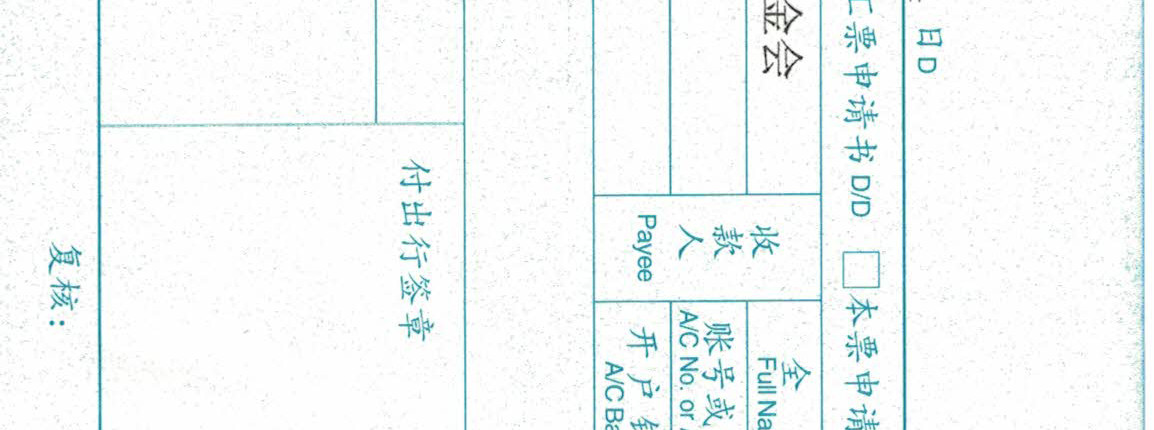 日 D
汇票申请书 D/D □ 本票申请
金会
全
Full Na
收款人
Payee
账号或
A/C No. or
开户
A/C Ba
付出行签章
复核：